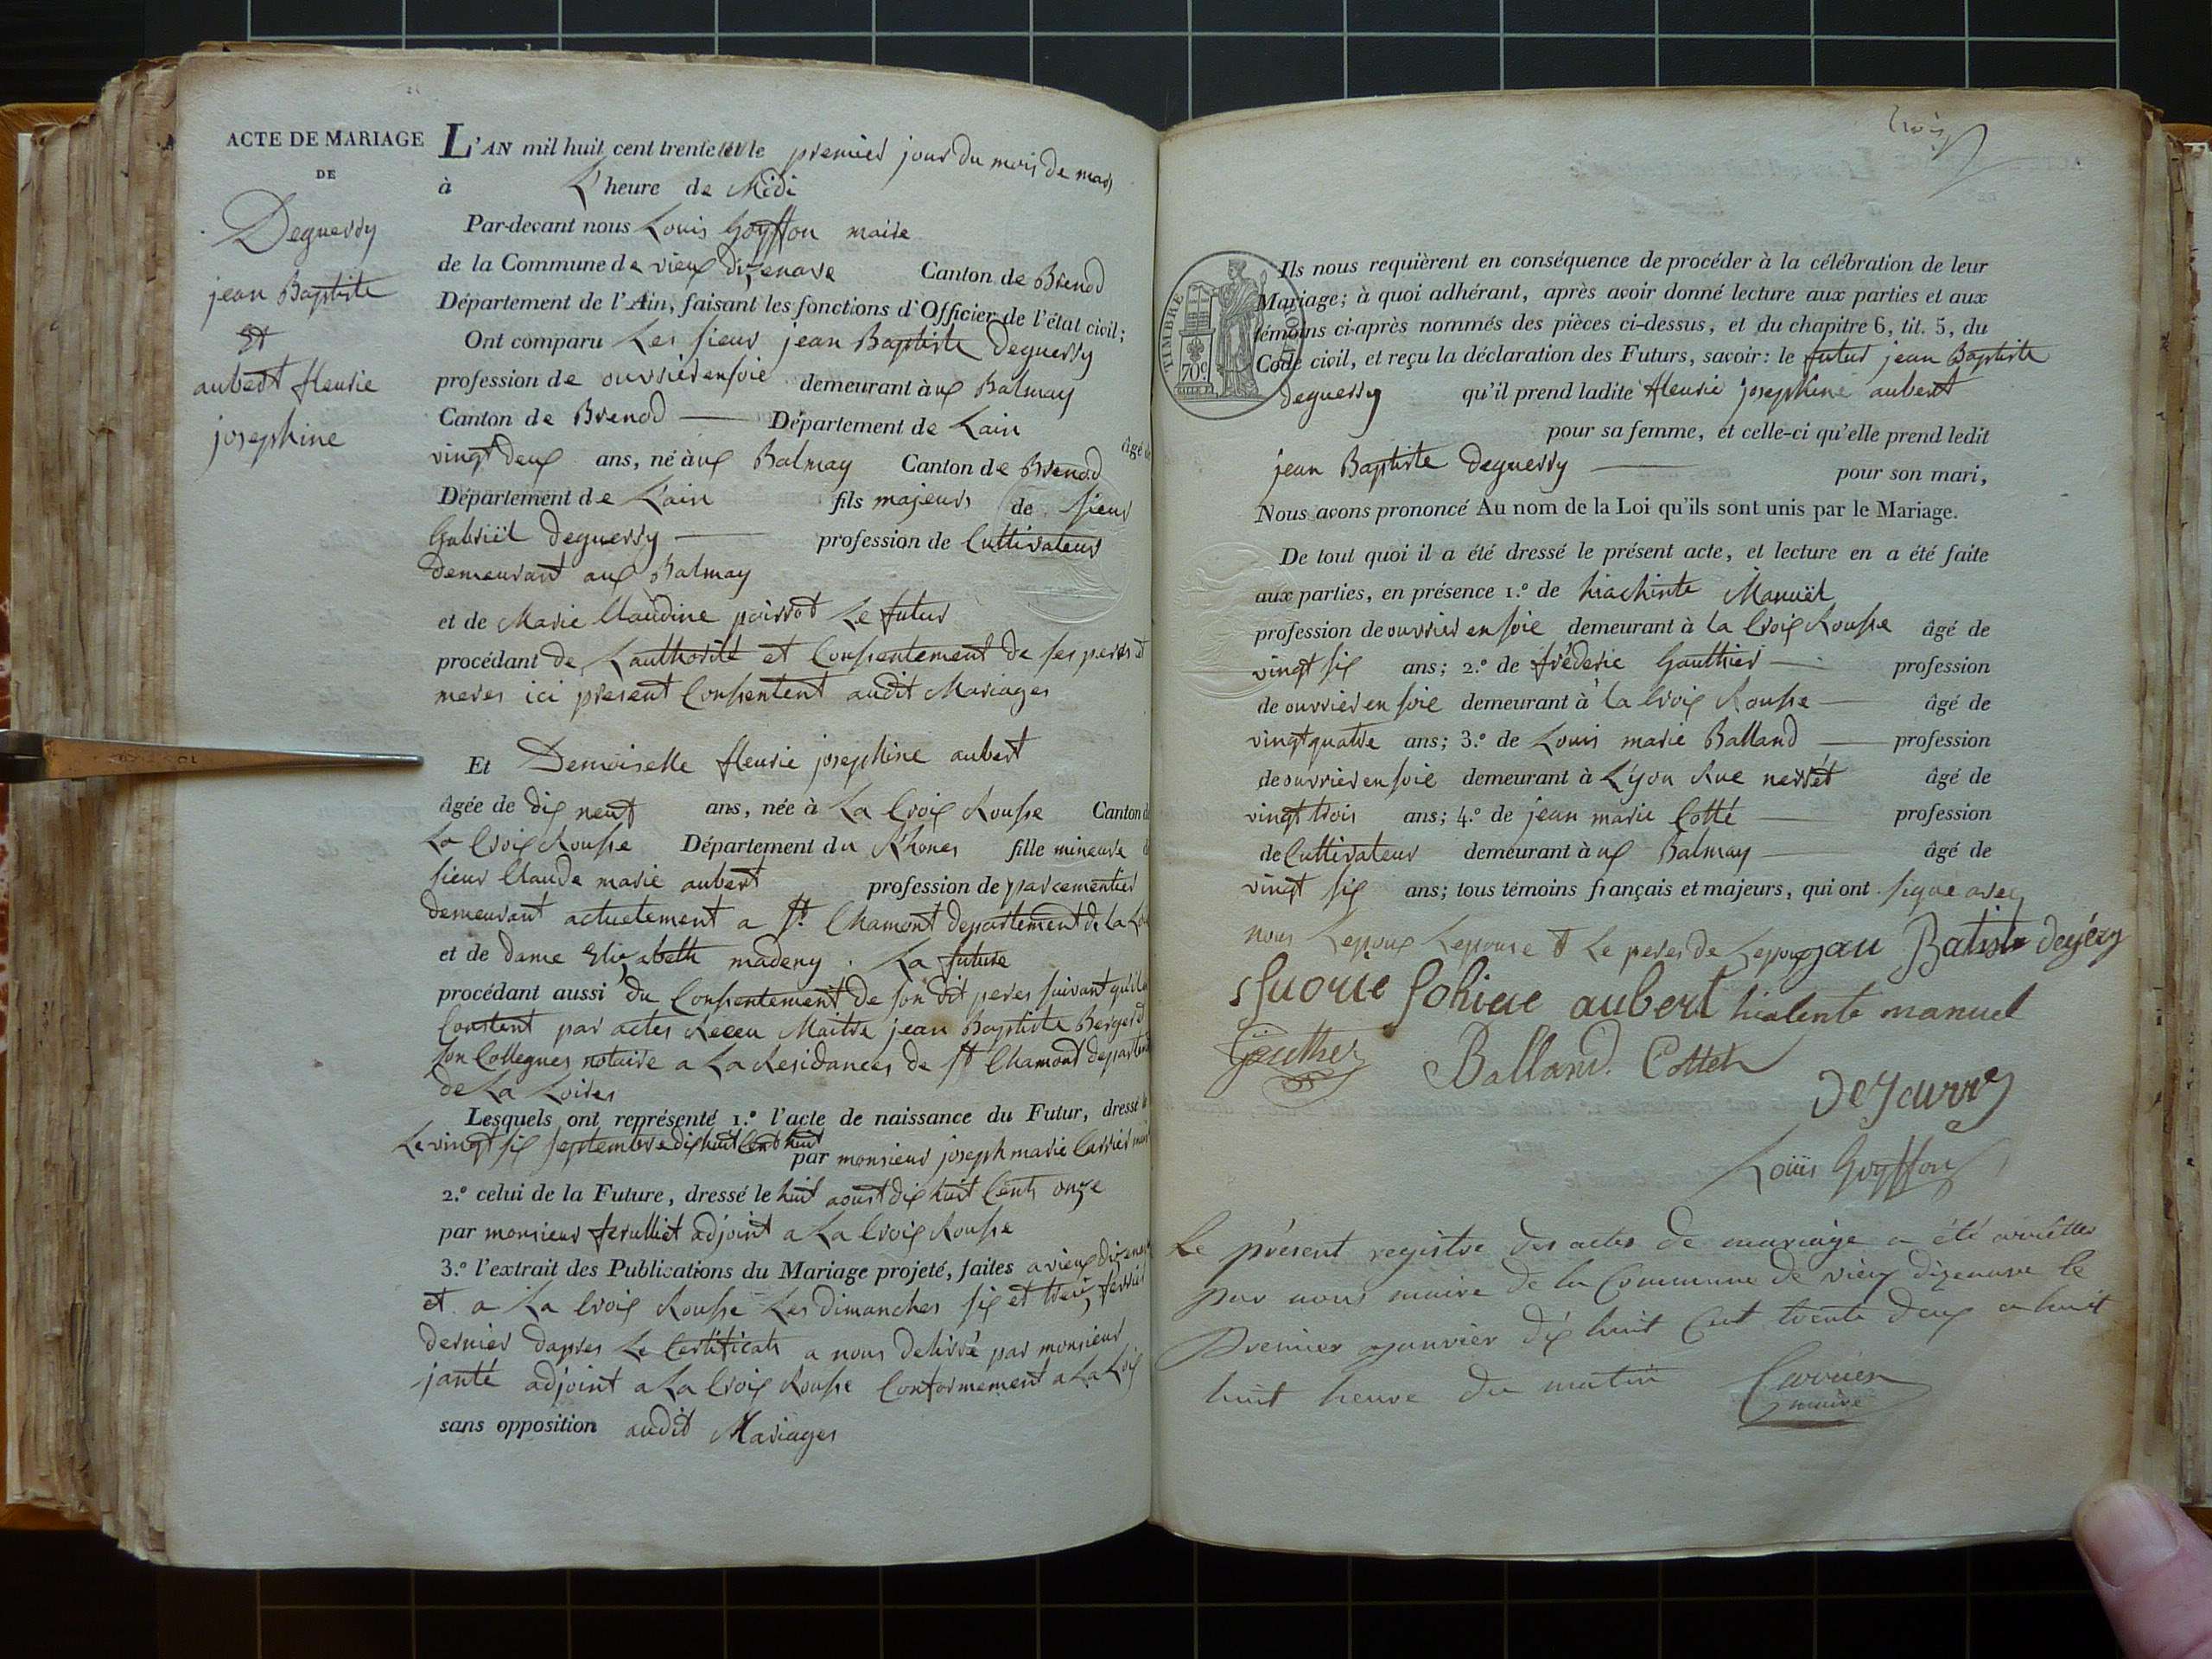 ACTE DE MARIAGE
DE
Deguerry
jean Baptiste
Et
aubert fleurie
josephine
L'AN mil huit cent trente et le premier jour du mois de mars
à L'heure de Midi
Par-devant nous Louis Goyffon maire
de la Commune de vieux dizenave Canton de Brenod
Département de l'Ain, faisant les fonctions d'Officier de l'état civil;
Ont comparu Les sieur jean Baptiste Deguerry
profession de ouvrier en soie demeurant à ux Balmay
Canton de Brenod Département de Lain
âgé de
vingt deux ans, né à ux Balmay Canton de Brenod
Département de L'ain fils majeurs de sieur
Gabriël Deguerry profession de Cultivateur
Demeurant aux Balmay
et de Marie Claudine poirrot Le futur
procédant de Lauthorité et Consentement de ses peres et
meres ici present Consentent audit Mariages
Et Demoiselle fleurie josephine aubert
âgée de dix neuf ans, née à La Croix Rousse Canton de
La Croix Rousse Département du Rhones fille mineure de
sieur Claude marie aubert profession de parcementier
Demeurant actuelement a St. Chamont departement de la
et de Dame Elizabeth madeny. La future
procédant aussi du Consentement de son dit peres suivant qu'il
Constent par actes Receu Maitre jean Baptiste Berger et
son Collegues notaire a La Residances de St Chamont departem
de La Loires
Lesquels ont représenté 1.º l'acte de naissance du Futur, dressé le
Le vingt six septembre dix huit Cent huit
par monsieur joseph marie Carrier
2.º celui de la Future, dressé le huit aoust dix huit Cents onze
par monsieur ferulliet adjoint a La Croix Rousse
3.º l'extrait des Publications du Mariage projeté, faites a vieux dizenave
et a La Croix Rousse Les dimanches six et treize fevrier
dernier dapres Le Certificats a nous Delivré par monsieur
janté adjoint a La Croix Rousse Conformement a La Loix
sans opposition audit Mariages
trois
TIMBRE ROYAL
70c
Ils nous requièrent en conséquence de procéder à la célébration de leur
Mariage; à quoi adhérant, après avoir donné lecture aux parties et aux
témoins ci-après nommés des pièces ci-dessus, et du chapitre 6, tit. 5, du
Code civil, et reçu la déclaration des Futurs, savoir: le futur jean Baptiste
deguerry qu'il prend ladite fleurie josephine aubert
pour sa femme, et celle-ci qu'elle prend ledit
jean Baptiste Deguerry pour son mari,
Nous avons prononcé Au nom de la Loi qu'ils sont unis par le Mariage.
De tout quoi il a été dressé le présent acte, et lecture en a été faite
aux parties, en présence 1.º de hiachinte Manuël
profession de ouvrier en soie demeurant à La Croix Rousse âgé de
vingt six ans; 2.º de fréderic Gauthier profession
de ouvrier en soie demeurant à la Croix Rousse âgé de
vingt quatre ans; 3.º de Louis marie Balland profession
de ouvrier en soie demeurant à Lyon Rue nerrét âgé de
vingt trois ans; 4.º de jean marie Cotté profession
de Cultivateur demeurant à ux Balmay âgé de
vingt six ans; tous témoins français et majeurs, qui ont signe avec
nous Lepoux Lepouse et Le peres de Lepoux jau Batiste degéry
fluorie fohine aubert hialente manuel
Gauthier Balland. Cottet
deJaurry
Louis Goyffon
Le présent registre des actes de mariage a été arrêttés
par nous maire de la Commune de vieux dizenave le
Premier janvier dix huit Cent trente deux a huit
huit heure du matin Carrier
maire